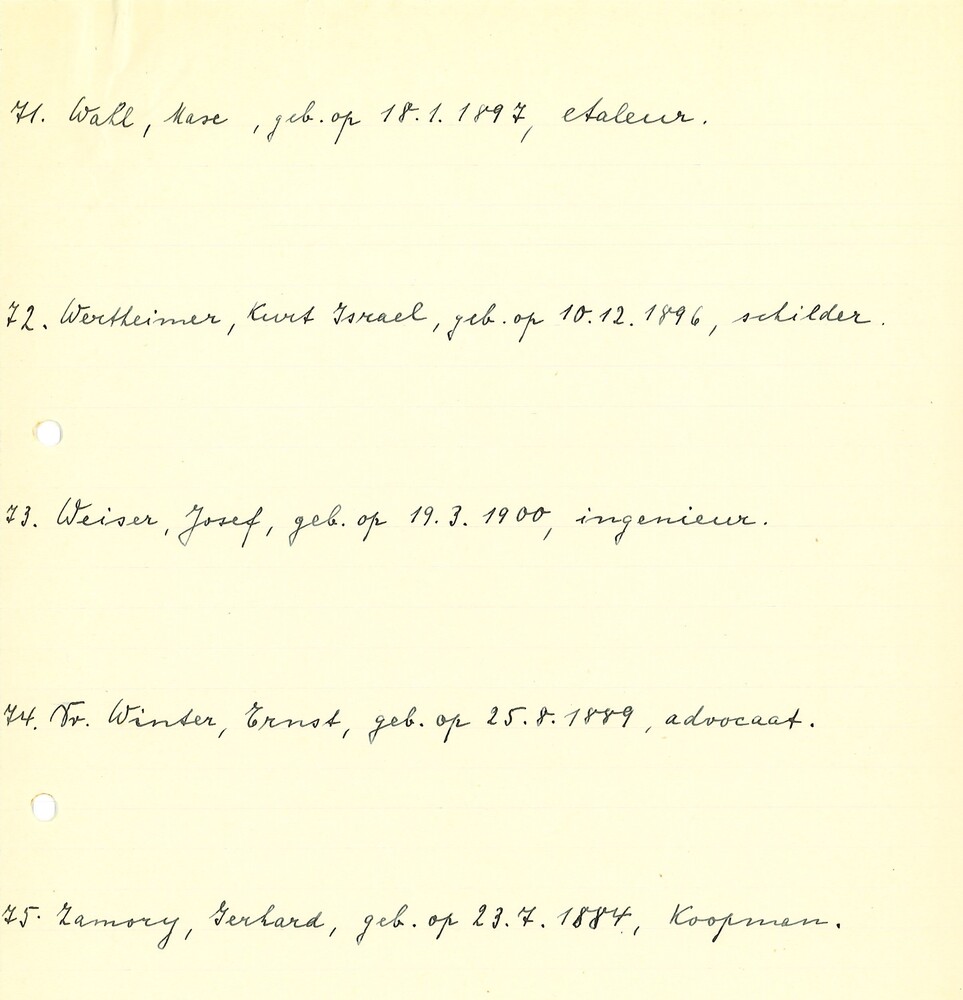 71. Wahl, Maxe, geb. op 18.1.1897, etaleur.
72. Wertheimer, Kurt Israel, geb. op 10.12.1896, schilder.
73. Weiser, Josef, geb. op 19.3.1900, ingenieur.
74. Dr. Winter, Ernst, geb. op 25.8.1889, advocaat.
75. Zamory, Gerhard, geb. op 23.7.1884, Koopman.